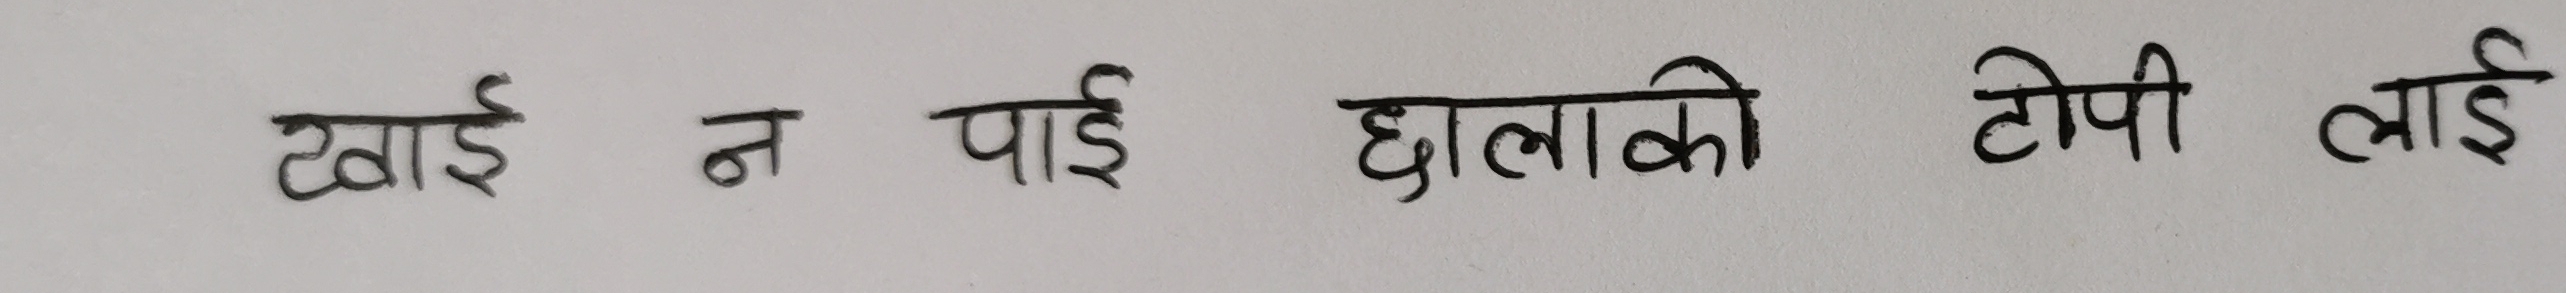 खाई न पाई छालाको टोपी लाई